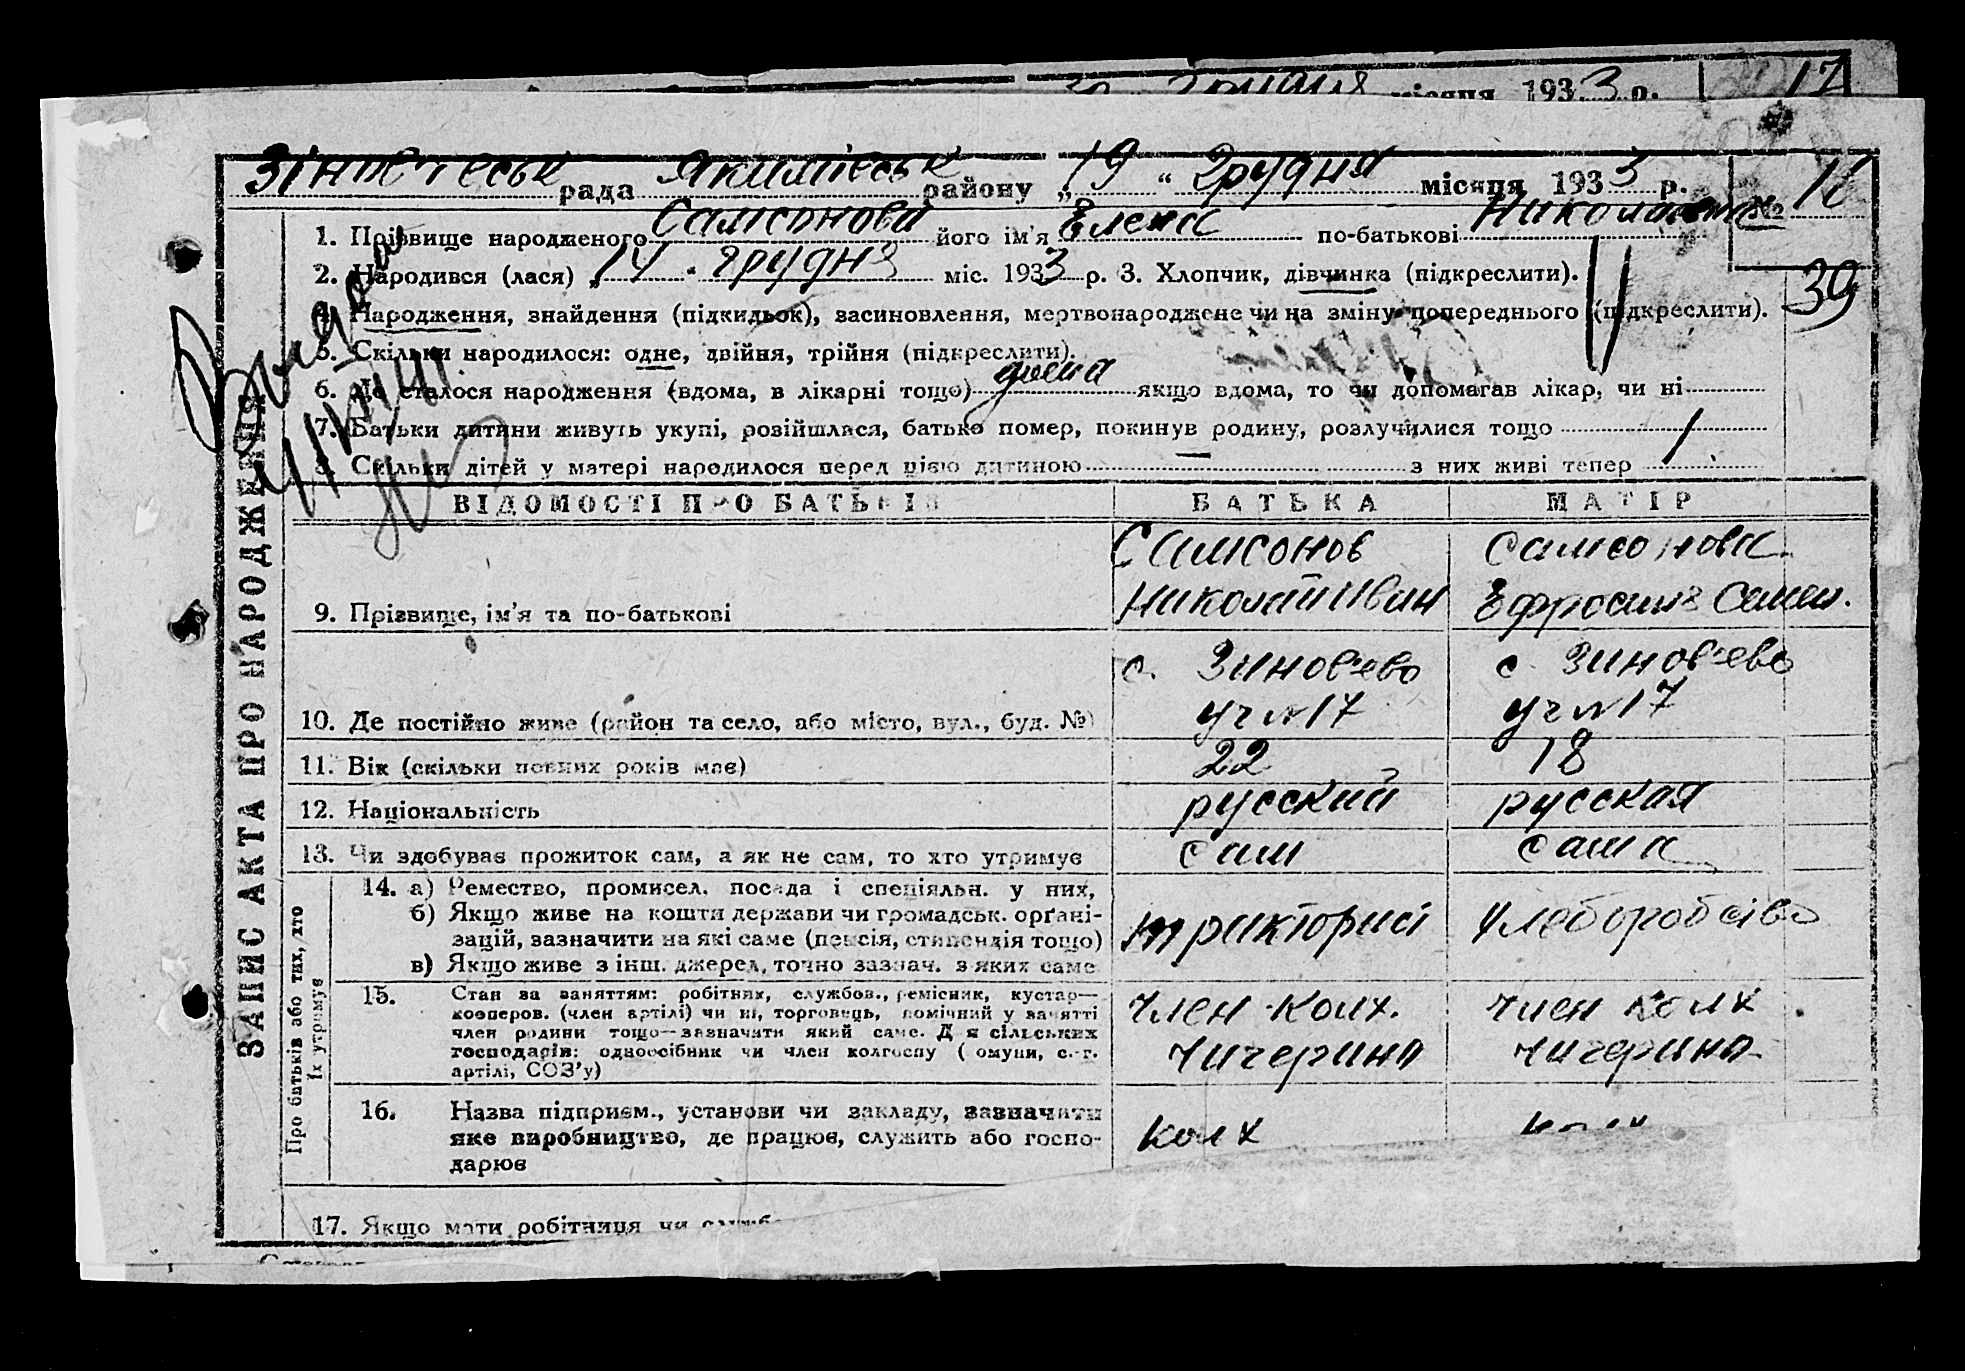 місяця 1933 р. 17
рада район у „19“ Грудня місяця 1933 р. №
1. Прізвище народженого Самсонова його ім'я Елена по-батькові Николаевна
2. Народився (лася) „14 . грудня міс. 1933 р. 3. Хлопчик, дівчинка (підкреслити).
39
4. Народження, знайдення (підкидьок), засиновлення, мертвонароджене чи на зміну попереднього (підкреслити).
5. Скільки народилося: одне, двійня, трійня (підкреслити).
6. Де сталося народження (вдома, в лікарні тощо) дома якщо вдома, то чи допомагав лікар, чи ні
7. Батьки дитини живуть укупі, розійшлися, батько помер, покинув родину, розлучилися тощо
8. Скільки дітей у матері народилося перед цією дитиною — з них живі тепер
ЗАПИС АКТА ПРО НАРОДЖЕННЯ
ВІДОМОСТІ ПРО БАТЬКІВ БАТЬКА МАТІР
Самсонов Самсонова
9. Прізвище, ім'я та по-батькові Николай Иван Ефросиня Семен.
с. Зинов'ево с. Зинов'ево
10. Де постійно живе (район та село, або місто, вул., буд. №) уч №17 уч №17
11. Вік (скільки повних років має) 22 18
12. Національність русский русская
13. Чи здобуває прожиток сам, а як не сам, то хто утримує сам сама
Про батьків або тих, хто їх утримує
14. а) Ремество, промисел. посада і спеціяльн. у них,
б) Якщо живе на кошти держави чи громадськ. орґані-
зацій, зазначити на які саме (пенсія, стипендія тощо) тракторист хлеборобство
в) Якщо живе з інш. джерел, точно зазнач. з яких саме
15. Стан за заняттям: робітник, службов., ремісник, кустар—
кооперов. (член артілі) чи ні, торговець, помічний у занятті член колх. член колх
член родини тощо—зазначити який саме. Для сільських
господарів: одноосібник чи член колгоспу (комуни, с.-г. Чичерина Чичерина
артілі, СОЗ'у)
16. Назва підприєм., установи чи закладу, зазначити
яке виробництво, де працює, служить або госпо- колх колх
дарює
17. Якщо мати робітниця чи